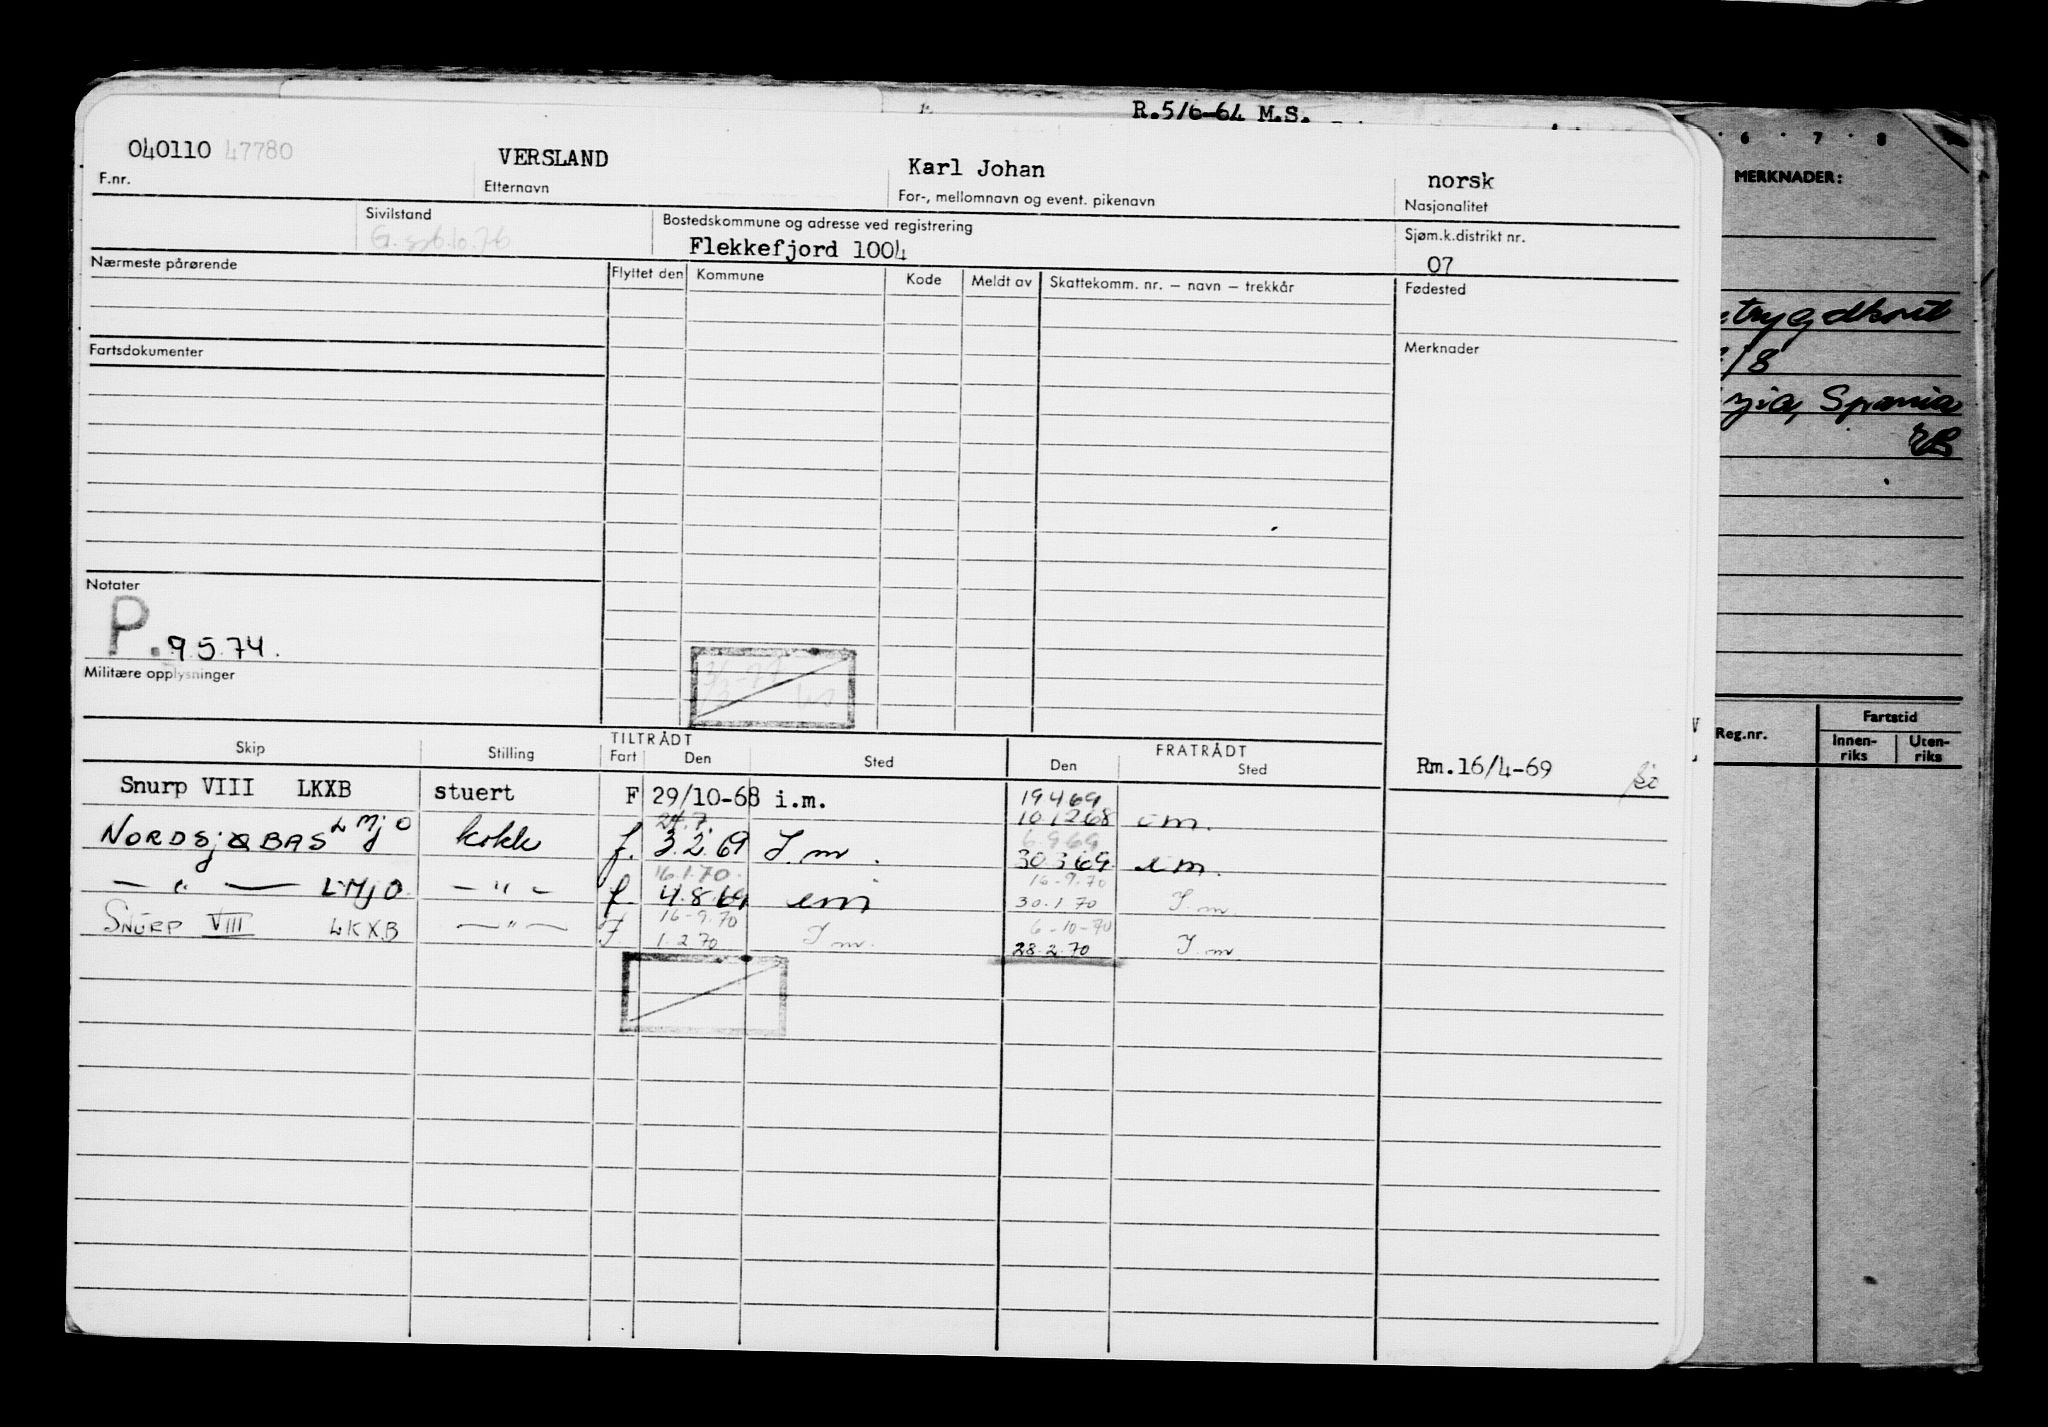 R.5/6-64 M.S.
040110 47780 VERSLAND Karl Johan norsk
F.nr. Etternavn For-, mellomnavn og event. pikenavn Nasjonalitet
Sivilstand Bostedskommune og adresse ved registrering Sjøm.k.distrikt nr.
Flekkefjord 1004 07
Nærmeste pårørende Flyttet den Kommune Kode Meldt av Skattekomm. nr. – navn – trekkår Fødested
Fartsdokumenter Merknader
Notater
P. 9.5.74.
Militære opplysninger
TILTRÅDT FRATRÅDT
Skip Stilling Fart Den Sted Den Sted
Rm.16/4-69
Snurp VIII LKXB stuert F 29/10-68 i.m. 19 4 69
10 12 68 i m.
24.7.
NORDSJØBAS LMJO kokk f. 3.2.69 I. m. 6.9.69
30 3 69. i m.
16.1.70.
— " — LMJO — " — f 4.8.69 im 16-9.70
30.1.70 I. m.
16-9.70
SNURP VIII LKXB — " — F 1.2 70 I m. 6-10-70
28.2.70 I. m.
6 7 8
MERKNADER:
trygdkort
/8
Spania
Fartstid
Reg.nr. Innen-riks Uten-riks